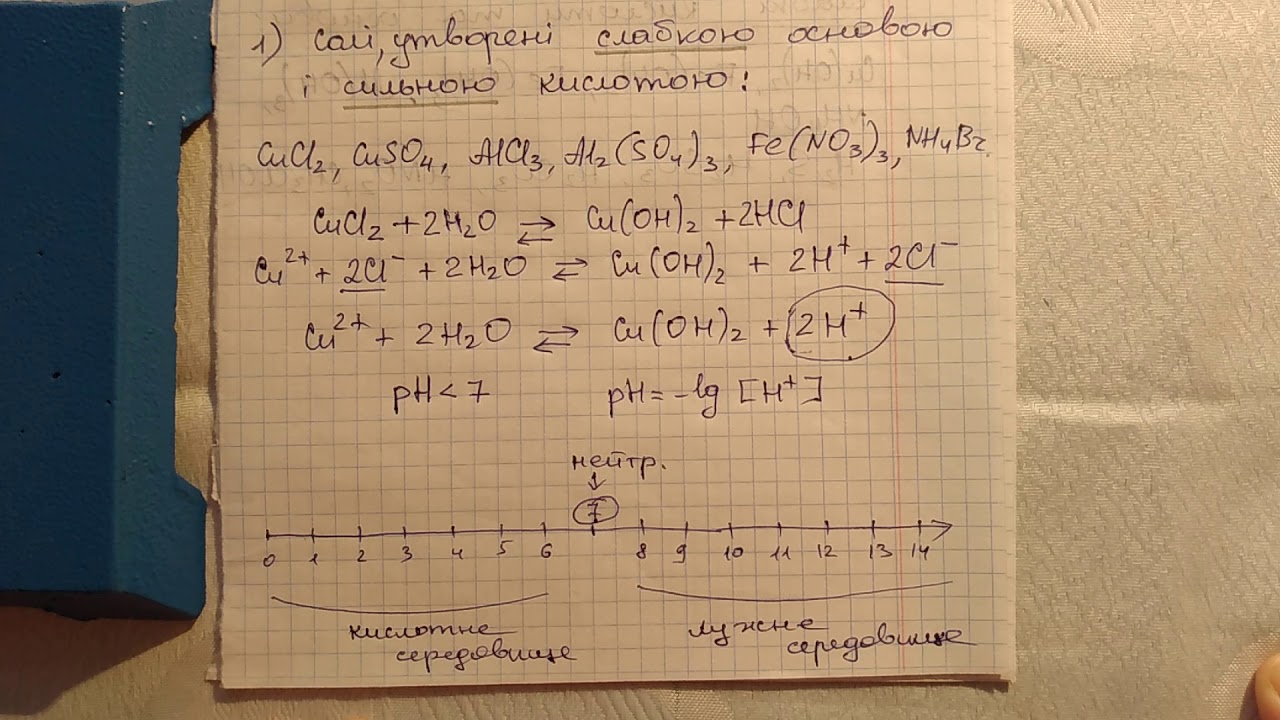 1) Солі, утворені слабкою основою
і сильною кислотою:
CuCl₂, CuSO₄, AlCl₃, Al₂(SO₄)₃, Fe(NO₃)₃, NH₄Br.
CuCl₂ + 2H₂O ⇄ Cu(OH)₂ + 2HCl
Cu²⁺ + 2Cl⁻ + 2H₂O ⇄ Cu(OH)₂ + 2H⁺ + 2Cl⁻
Cu²⁺ + 2H₂O ⇄ Cu(OH)₂ + 2H⁺
pH < 7 pH = -lg [H⁺]
нейтр.
↓
7
0 1 2 3 4 5 6 8 9 10 11 12 13 14
кислотне лужне
середовище середовище